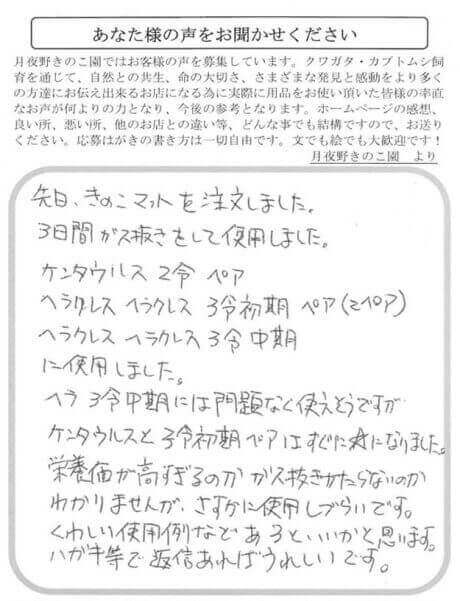 あなた様の声をお聞かせください
月夜野きのこ園ではお客様の声を募集しています。クワガタ・カブトムシ飼
育を通じて、自然との共生、命の大切さ、さまざまな発見と感動をより多く
の方達にお伝え出来るお店になる為に実際に用品をお使い頂いた皆様の率直
なお声が何よりの力となり、今後の参考となります。ホームページの感想、
良い所、悪い所、他のお店との違い等、どんな事でも結構ですので、お送り
ください。応募はがきの書き方は一切自由です。文でも絵でも大歓迎です！
月夜野きのこ園　より
先日、きのこマットを注文しました。
3日間ガス抜きをして使用しました。
ケンタウルス 2令 ペア
ヘラクレス ヘラクレス 3令初期 ペア(2ペア)
ヘラクレス ヘラクレス 3令中期
に使用しました。
ヘラ 3令中期には問題なく使えそうですが
ケンタウルスと3令初期ペアはすぐに★になりました。
栄養価が高すぎるのか ガス抜きがたらないのか
わかりませんが、さすがに使用しづらいです。
くわしい使用例などあるといいかと思います。
ハガキ等で返信あればうれしいです。